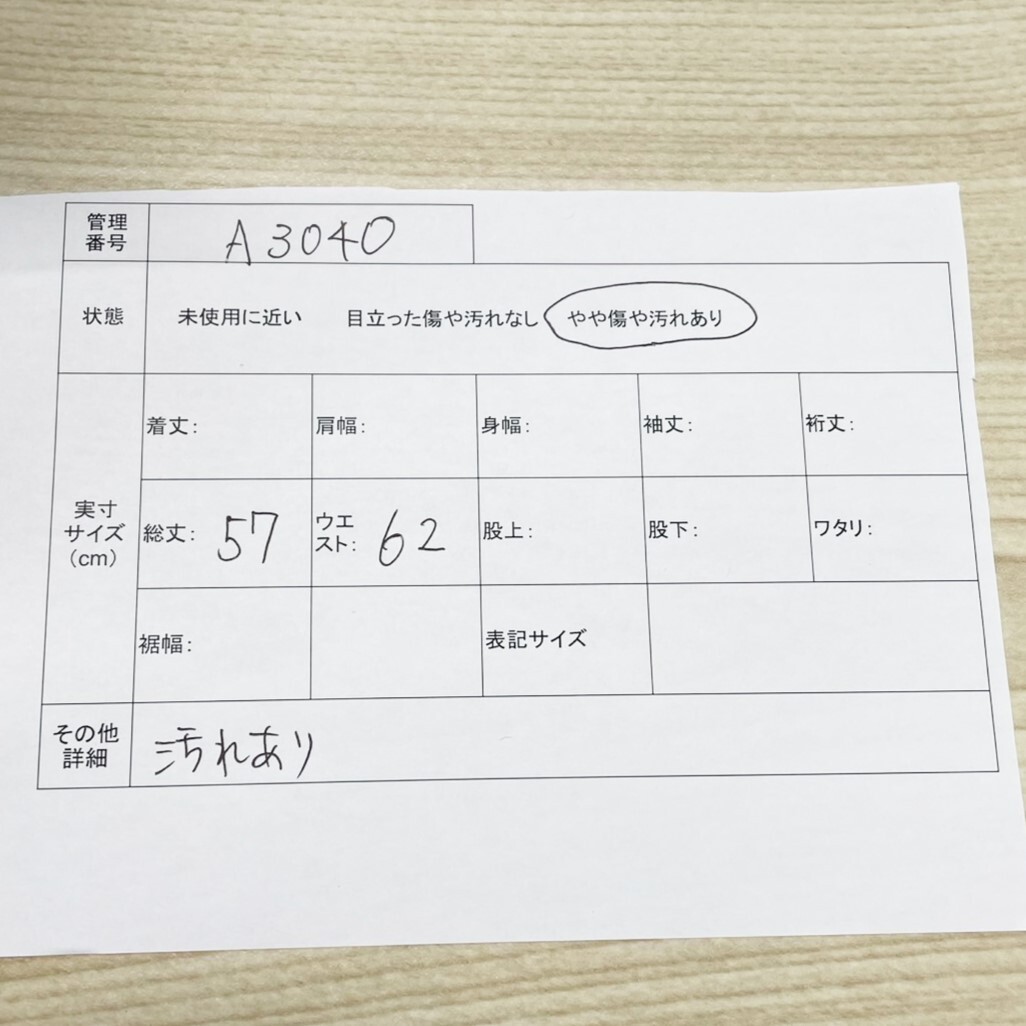 管理
番号
A3040
状態
未使用に近い 目立った傷や汚れなし やや傷や汚れあり
実寸
サイズ
(cm)
着丈: 肩幅: 身幅: 袖丈: 裄丈:
総丈: 57 ウエ
スト: 62 股上: 股下: ワタリ:
裾幅: 表記サイズ
その他
詳細
汚れあり